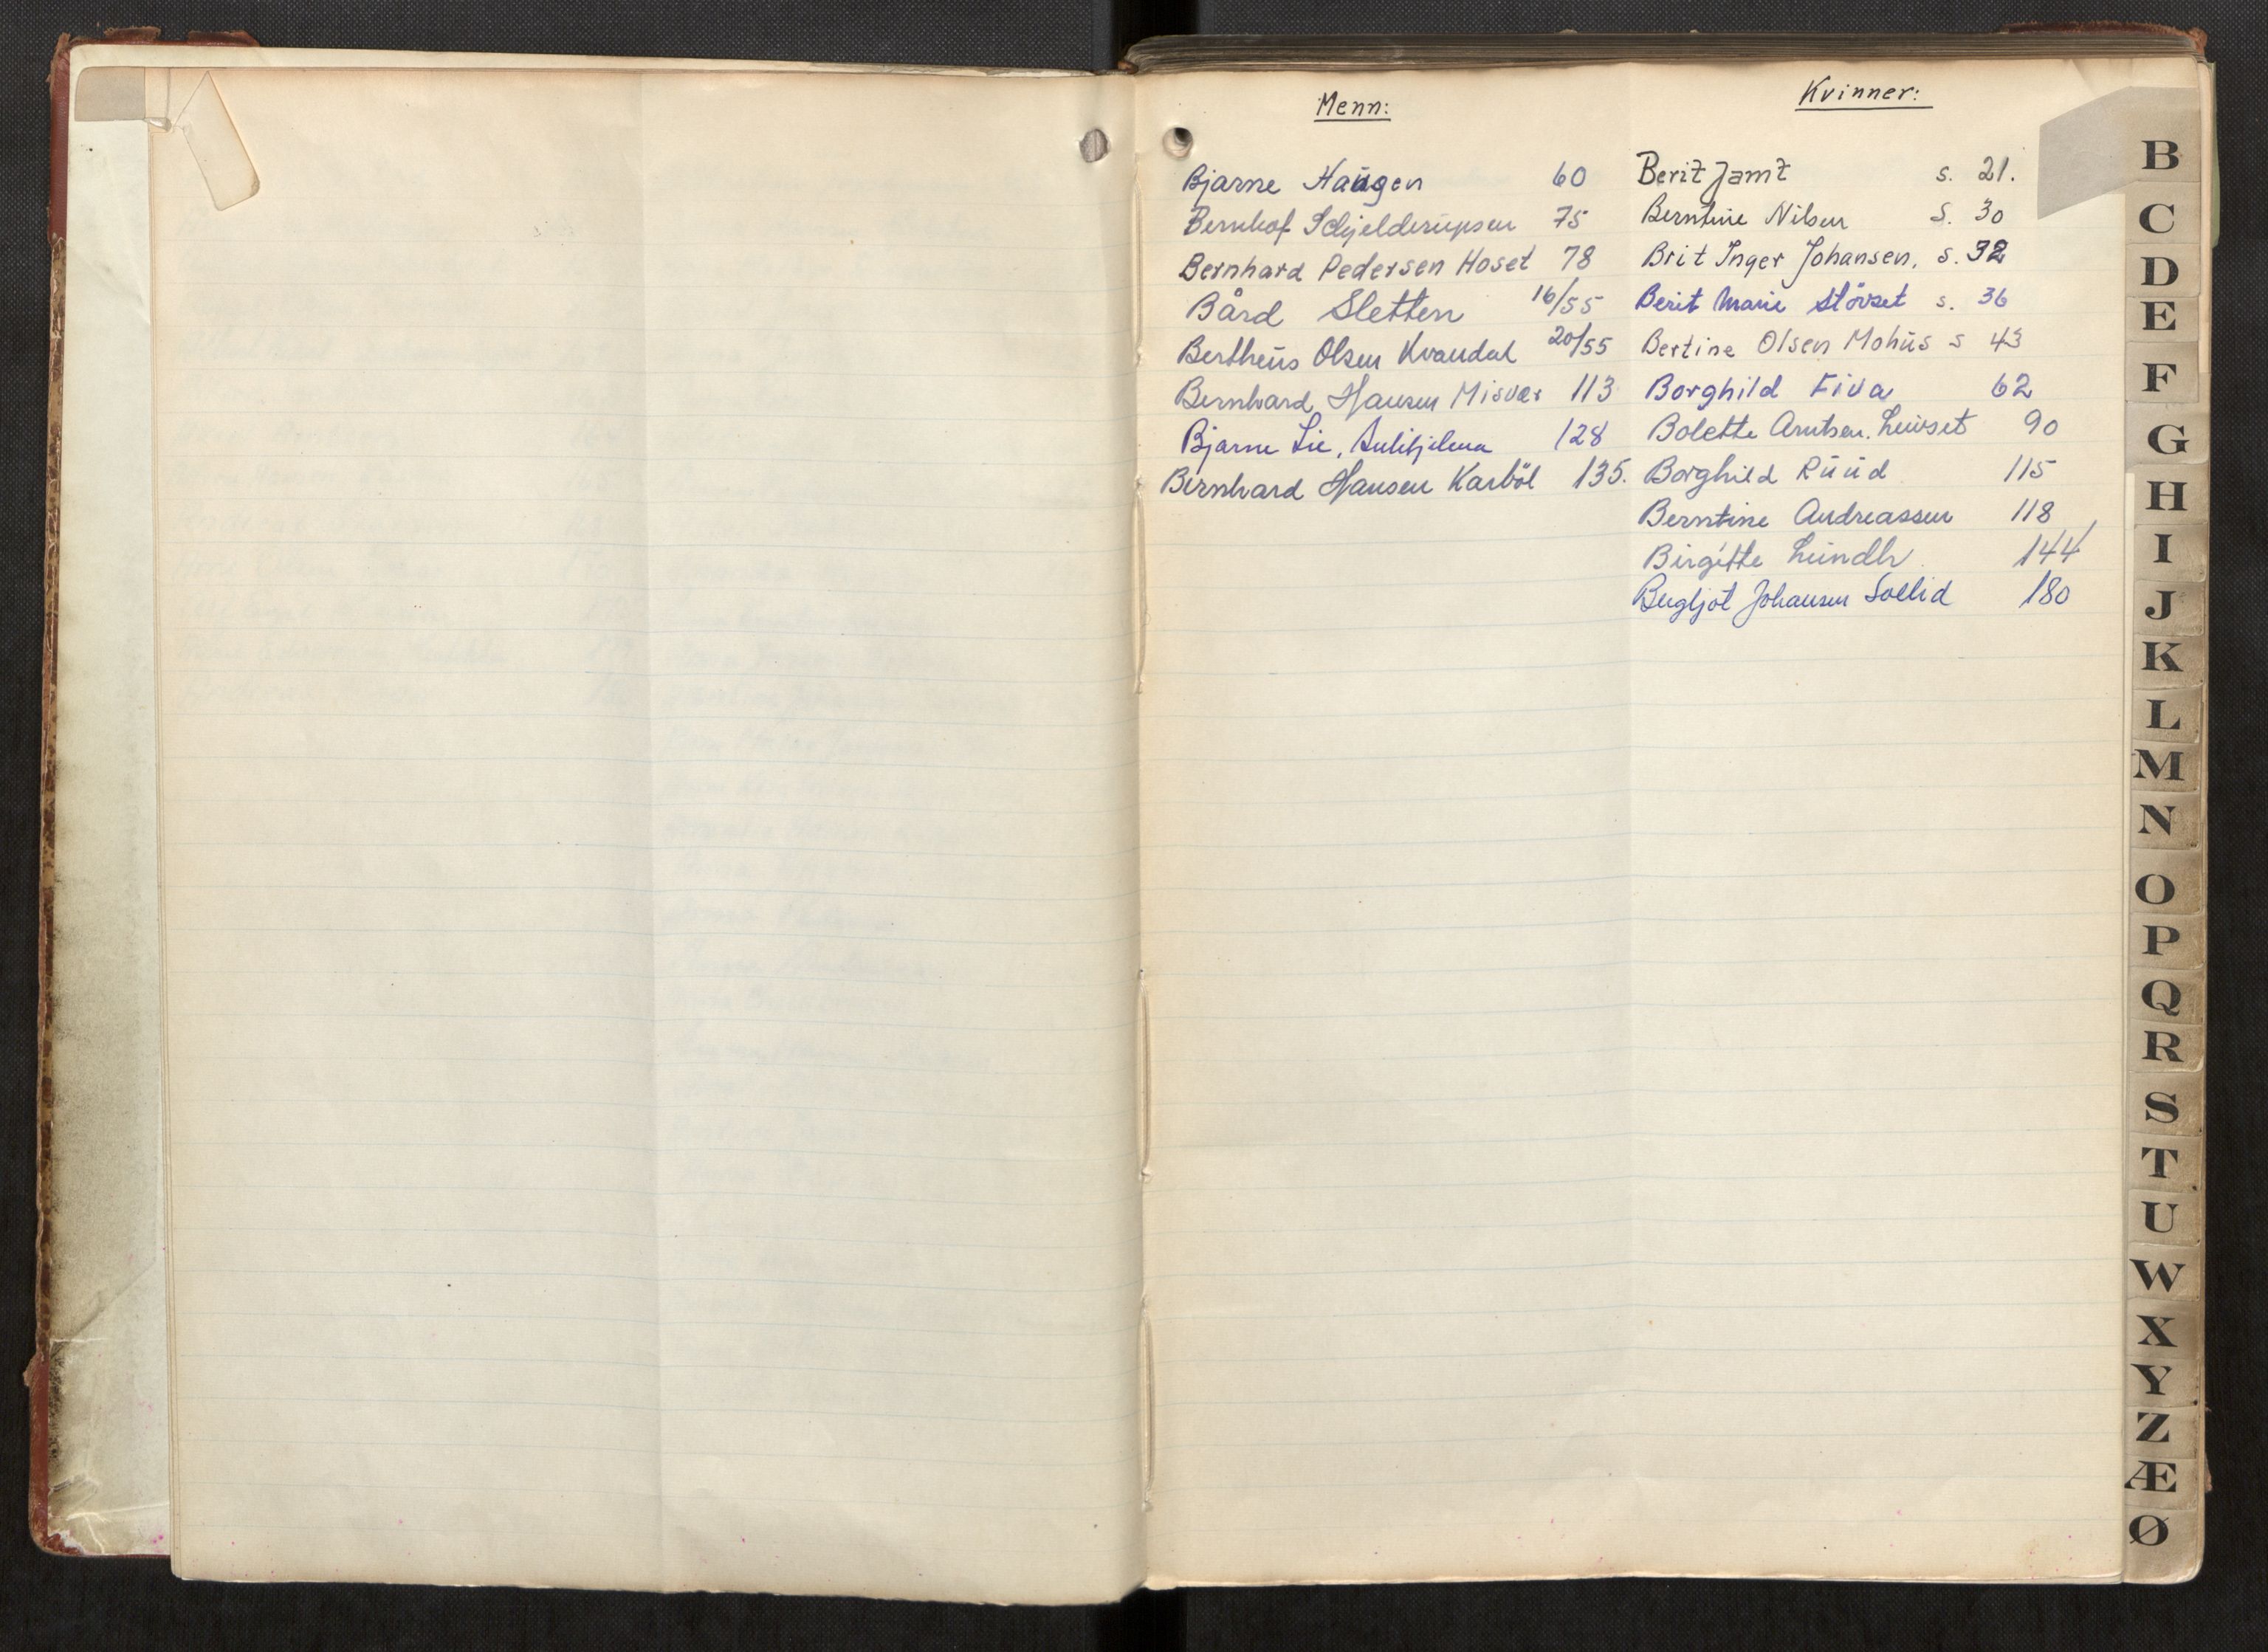 Menn:
Bjarne Haugen 60
Bernhof Schjelderupsen 75
Bernhard Pedersen Hoset 78
Bård Sletten 16/55
Bertheus Olsen Kvandal 20/55
Bernhard Hansen Misvær 113
Bjarne Lie, Sulitjelma 128
Bernhard Hansen Karbøl 135.
Kvinner:
Berit Jamt s. 21.
Berntine Nilsen S. 30
Brit Inger Johansen, s. 32
Berit Marie Støvset s. 36
Bertine Olsen Mohus s 43
Borghild Fiva 62
Bolette Arntsen 90
Borghild Ruud 115
Berntine Andreassen 118
Birgitte Lundh 144
Bergljot Johansen Sollid 180
B
C
D
E
F
G
H
I
J
K
L
M
N
O
P
Q
R
S
T
U
W
X
Y
Z
Æ
Ø